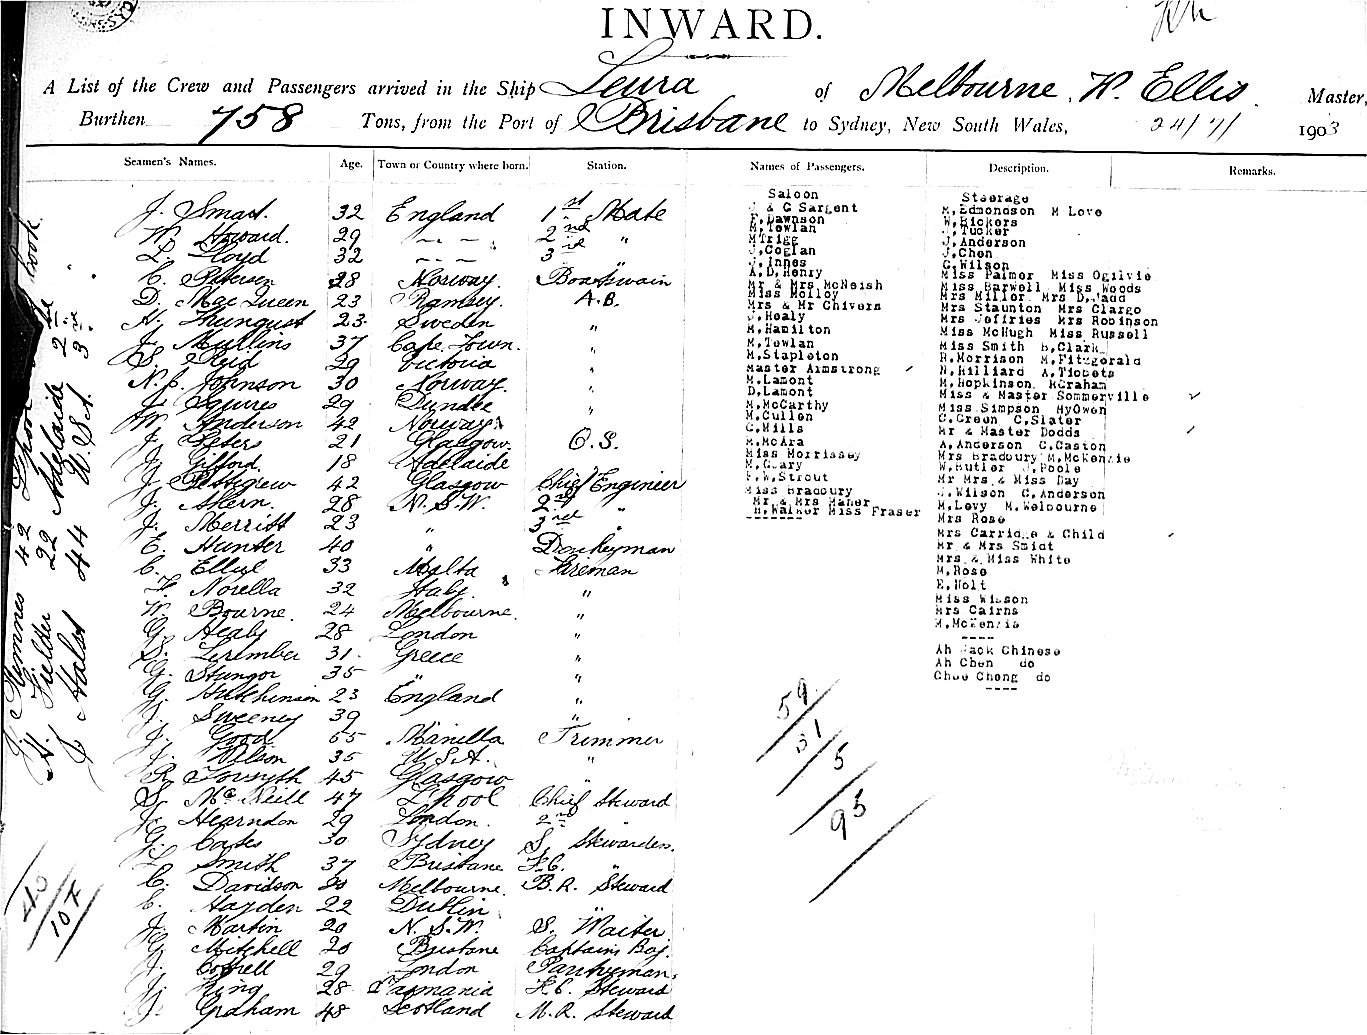 INWARD.
A List of the Crew and Passengers arrived in the Ship Leura of Melbourne, W. Ellis Master,
Burthen 758 Tons, from the Port of Brisbane to Sydney, New South Wales, 24/7/1903
Seamen's Names. Age. Town or Country where born. Station. Names of Passengers. Description. Remarks.
J. Smart. 32 England 1st Mate
W. Howard. 29 " " 2nd "
L. Lloyd 32 " " 3rd "
C. Petersen 28 Norway. Boatswain
D. MacQueen 23 Ramsey. A.B.
H. 23 Sweden "
J. Mullins 37 Cape Town. "
S. Reid 29 Victoria "
N.J. Johnson 30 Norway. "
J. Squires 29 Dundee "
W. Anderson 42 Norway "
J. Peters 21 Glasgow O.S.
J. Gifford. 18 Adelaide "
J. Pettigrew 42 Glasgow Chief Engineer
J. Ahern. 28 N.S.W. 2nd "
J. Merritt 23 " 3rd "
E. Hunter 40 " Donkeyman
C. Ellul 33 Malta Fireman
F. Norella 32 Italy. "
W. Bourne. 24 Melbourne. "
G. Healy 28 London "
S. 31. Greece "
G. 35 " "
G. Hutchinson 23 England "
J. Sweeney 39 " "
J. Good 65 Manilla Trimmer
J. Wilson 35 U.S.A. "
R. Forsyth 45 Glasgow "
S. McNeill 47 L'pool Chief Steward
J. Hearndon 29 London. 2nd "
G. Cates 30 Sydney S. Stewardess.
L. Smith 37 Brisbane F.C. "
C. Davidson 20 Melbourne. B.R. Steward
C. Hayden 22 Dublin "
J. Martin 20 N.S.W. S. Waiter
G. Mitchell 20 Brisbane Captains Boy.
H. Cottrell 29 London Pantryman.
J. King 28 Tasmania F.C. Steward
J. Graham 48 Scotland M.R. Steward
J. 42 L'pool cook.
H. Fielder 22 Adelaide 2nd "
J. Hales 44 U.S.A. 3rd "
40
107
Saloon
J & C Sargent
F. Dawnson
M. Tewlan
M Trigg
J. Coglan
J. Innes
A. D. Henry
Mr & Mrs McNeish
Miss Molloy
Mrs & Mr Chivers
J. Healy
M. Hamilton
M. Tewlan
M. Stapleton
Master Armstrong
M. Lamont
D. Lamont
M. McCarthy
M. Cullen
C. Mills
M. McAra
Miss Morrissey
M. Geary
F. W. Strout
Miss Bradbury
Mr & Mrs Maher
H. Walker Miss Fraser
Steerage
M. Edmondson M Love
W. Rickers
J. Tucker
J. Anderson
J. Chen
C. Wilson
Miss Palmer Miss Ogilvie
Miss Barwell Miss Woods
Mrs Millor Mrs D. Jadd
Mrs Staunton Mrs Clargo
Mrs Jeffries Mrs Robinson
Miss McHugh Miss Russell
Miss Smith B. Clark
R. Morrison M. Fitzgerald
N. Hilliard A. Tibbets
M. Hopkinson McGraham
Miss & Master Sommerville
Miss Simpson MyOwen
C. Green C. Slater
Mr & Master Dodds
A. Anderson C. Caston
Mrs Bradbury M. McKenzie
W. Butler J. Poole
Mr Mrs & Miss Day
J. Wilson C. Anderson
M. Levy M. Welbourne
Mrs Rose
Mrs Carridge & Child
Mr & Mrs Smidt
Mrs & Miss White
M. Rose
E. Holt
Miss Wilson
Mrs Cairns
M. McKenzie
----
Ah Jack Chinese
Ah Chen do
Choe Chong do
----
59
31
5
95